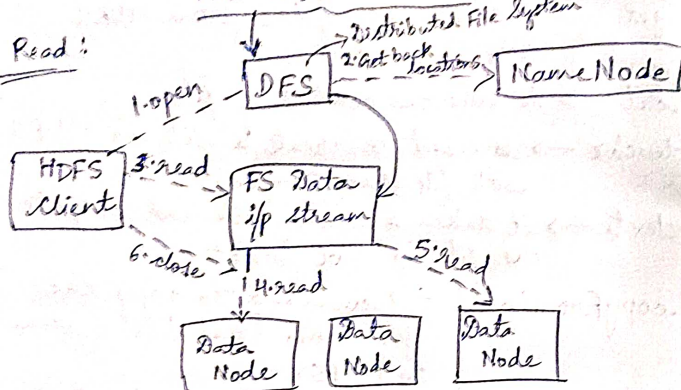 Distributed File System
Read :
2. Get back
locations
DFS
Name Node
1. open
HDFS
Client
3. read
FS Data
i/p stream
6. close
5. read
4. read
Data
Node
Data
Node
Data
Node